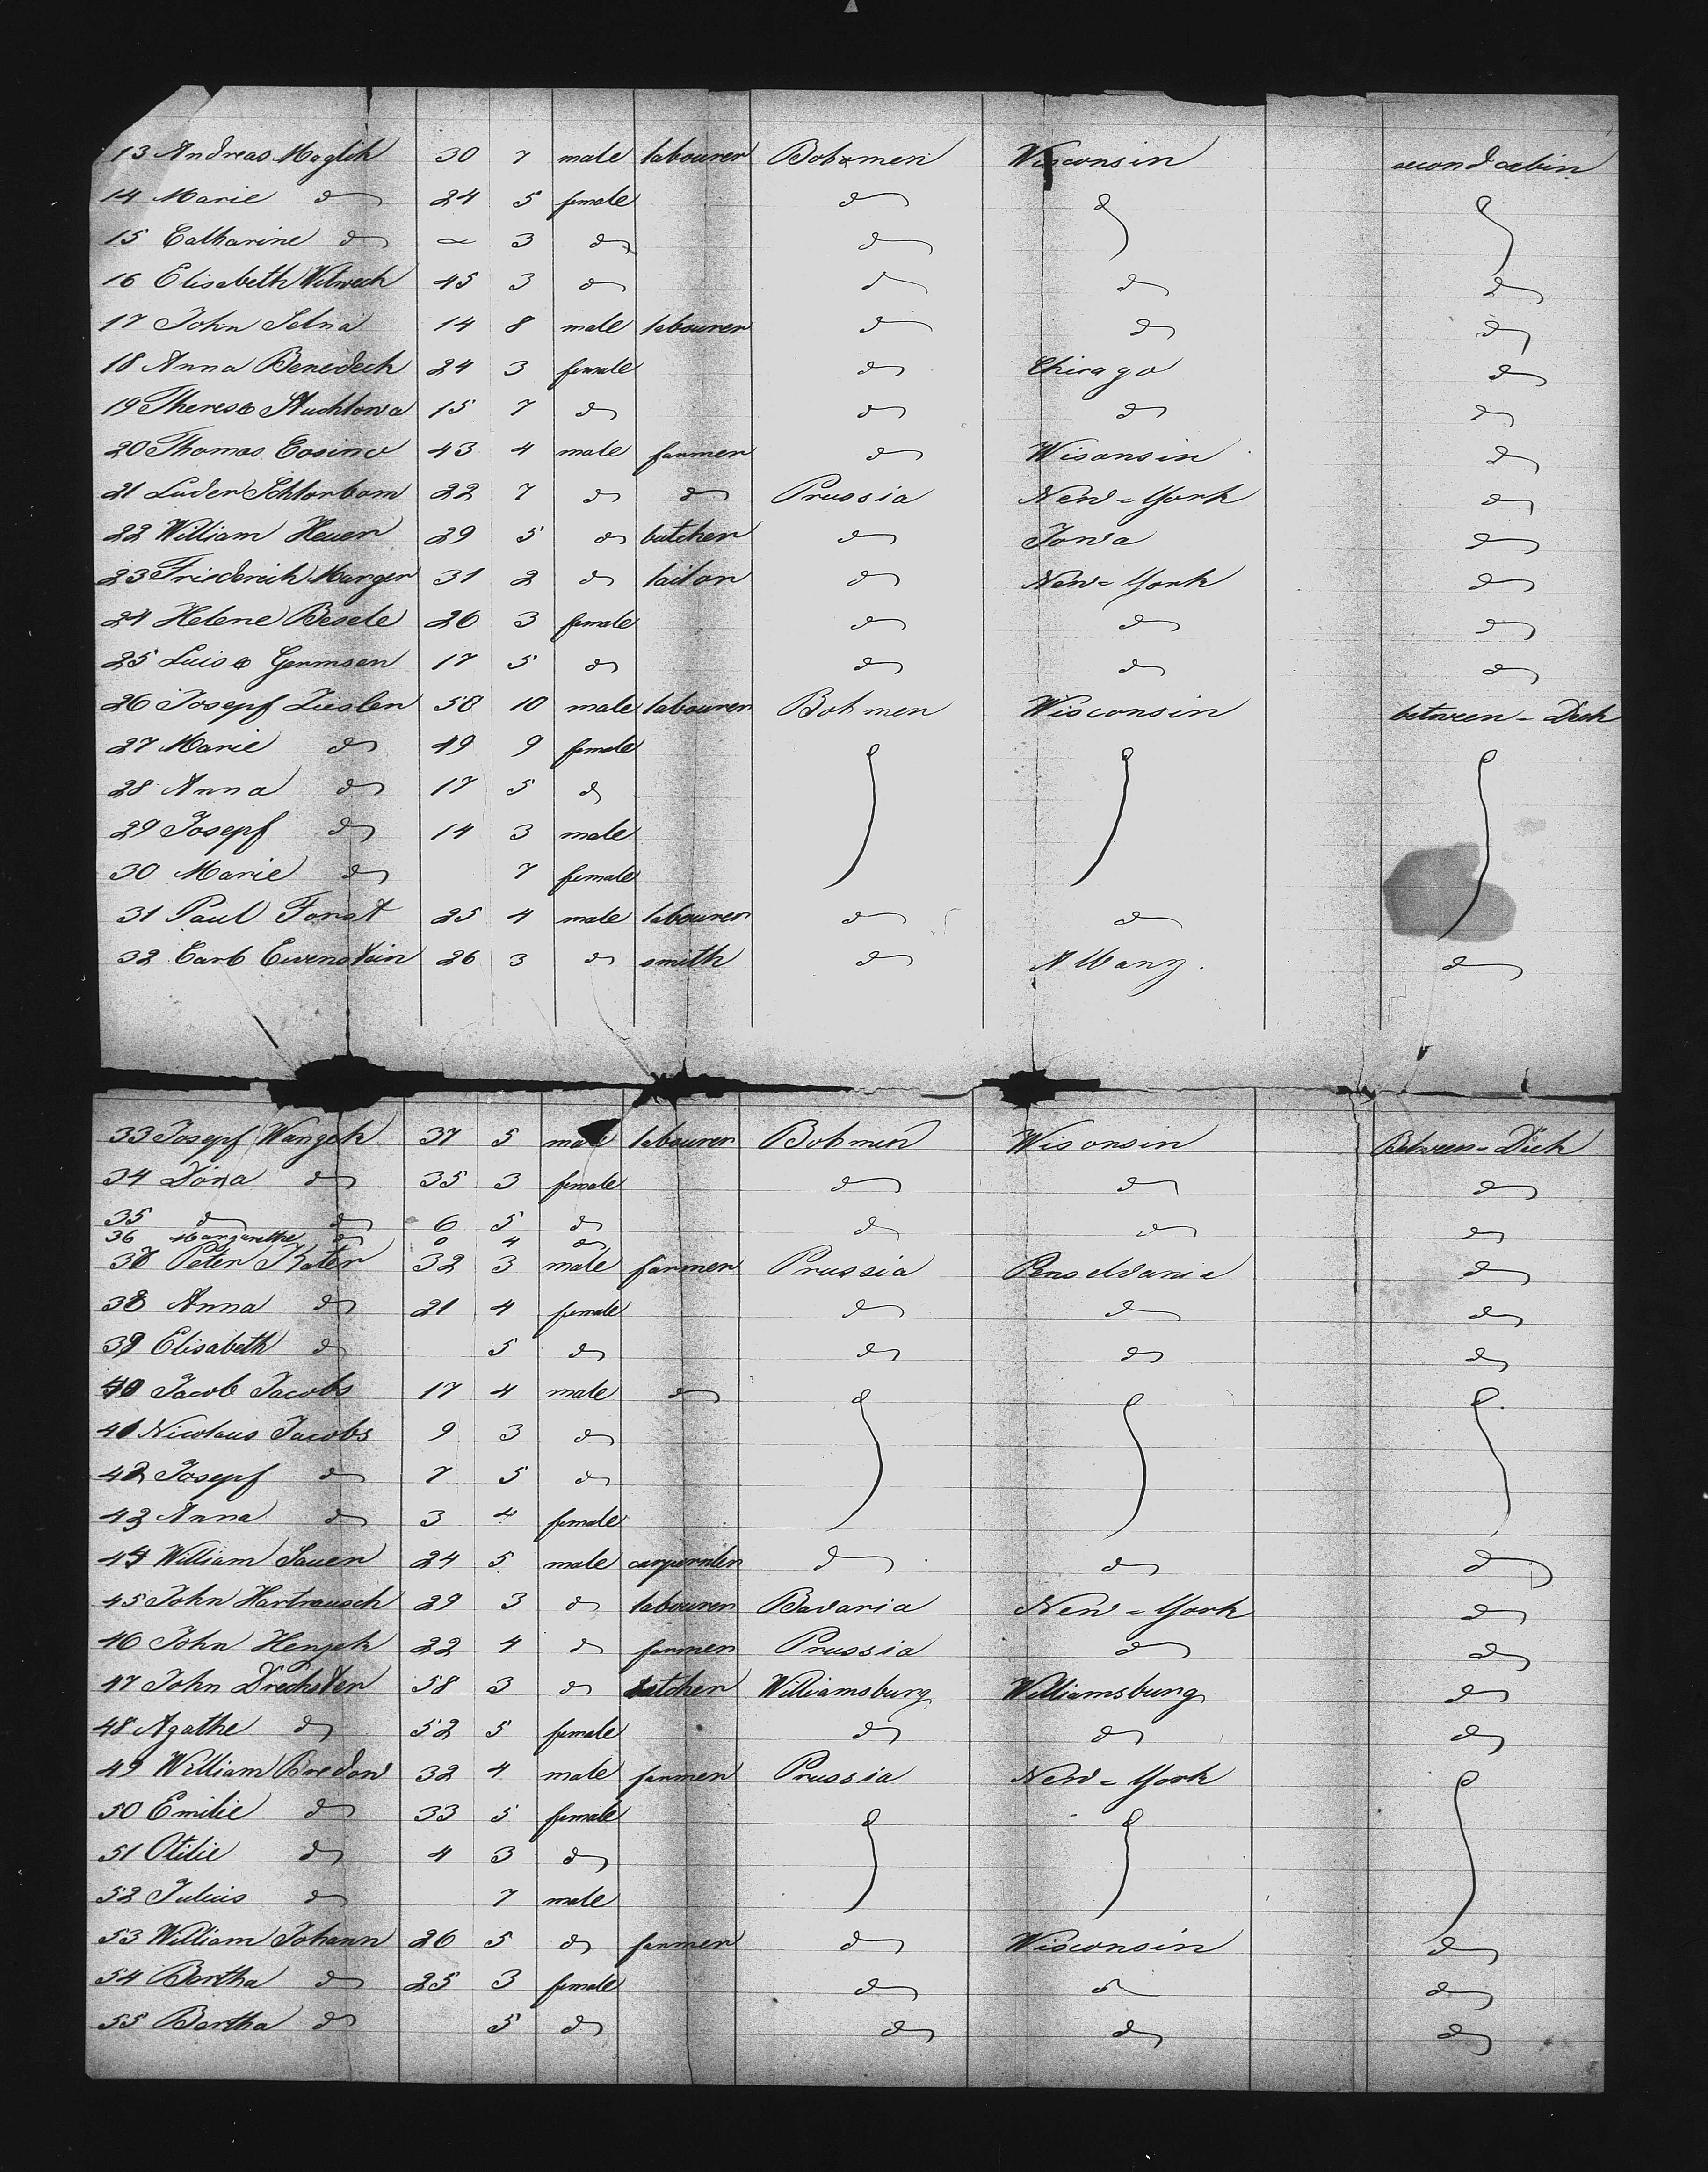 13 Andreas Maglik 30 7 male labourer Bohmen Wisconsin second cabin
14 Marie do 24 5 female do do do
15 Catharine do — 3 do do
16 Elisabeth Witwech 45 3 do do do do
17 John Selna 14 8 male labourer do do do
18 Anna Benedeck 24 3 female do Chicago do
19 Therese Stuchlowa 15 7 do do do do
20 Thomas Cosino 43 4 male farmer do Wisonsin do
21 Luder Schlorbom 22 7 do do Prussia New-York do
22 William Heuer 29 5 do butcher do Iowa do
23 Friederich Marger 31 2 do tailor do New-York do
24 Helene Besele 26 3 female do do do
25 Luise Germsen 17 5 do do do do
26 Josepf Ziesler 58 10 male labourer Bohmen Wisconsin between-Deck
27 Marie do 49 9 female do do do
28 Anna do 17 5 do
29 Josepf do 14 3 male
30 Marie do 7 female
31 Paul Forst 25 4 male labourer do do
32 Carl 26 3 do smith do Albany. do
33 Josepf Wangek 37 5 male labourer Bohmen Wisonsin Between-Dick
34 Dora do 35 3 female do do do
35 do do 6 5 do do do do
36 Margarethe do 0 4 do
37 Peter Kater 32 3 male farmer Prussia Penseldania do
38 Anna do 21 4 female do do do
39 Elisabeth do 5 do do do do
40 Jacob Jacobs 17 4 male do do do do
41 Nicolaus Jacobs 9 3 do
42 Josepf do 7 5 do
43 Anna do 3 4 female
44 William Sauer 24 5 male carpernter do do do
45 John Hartrausch 29 3 do labourer Bavaria New-York do
46 John Hengek 22 4 do farmer Prussia do do
47 John Drechsler 58 3 do butcher Williamsburg Williamsburg do
48 Agathe do 52 5 female do do do
49 William Bredow 32 4 male farmer Prussia New-York do
50 Emilie do 33 5 female do do
51 Otilie do 4 3 do
52 Julius do 7 male
53 William Johann 26 5 do farmer do Wisconsin do
54 Bertha do 25 3 female do do do
55 Bertha do 5 do do do do